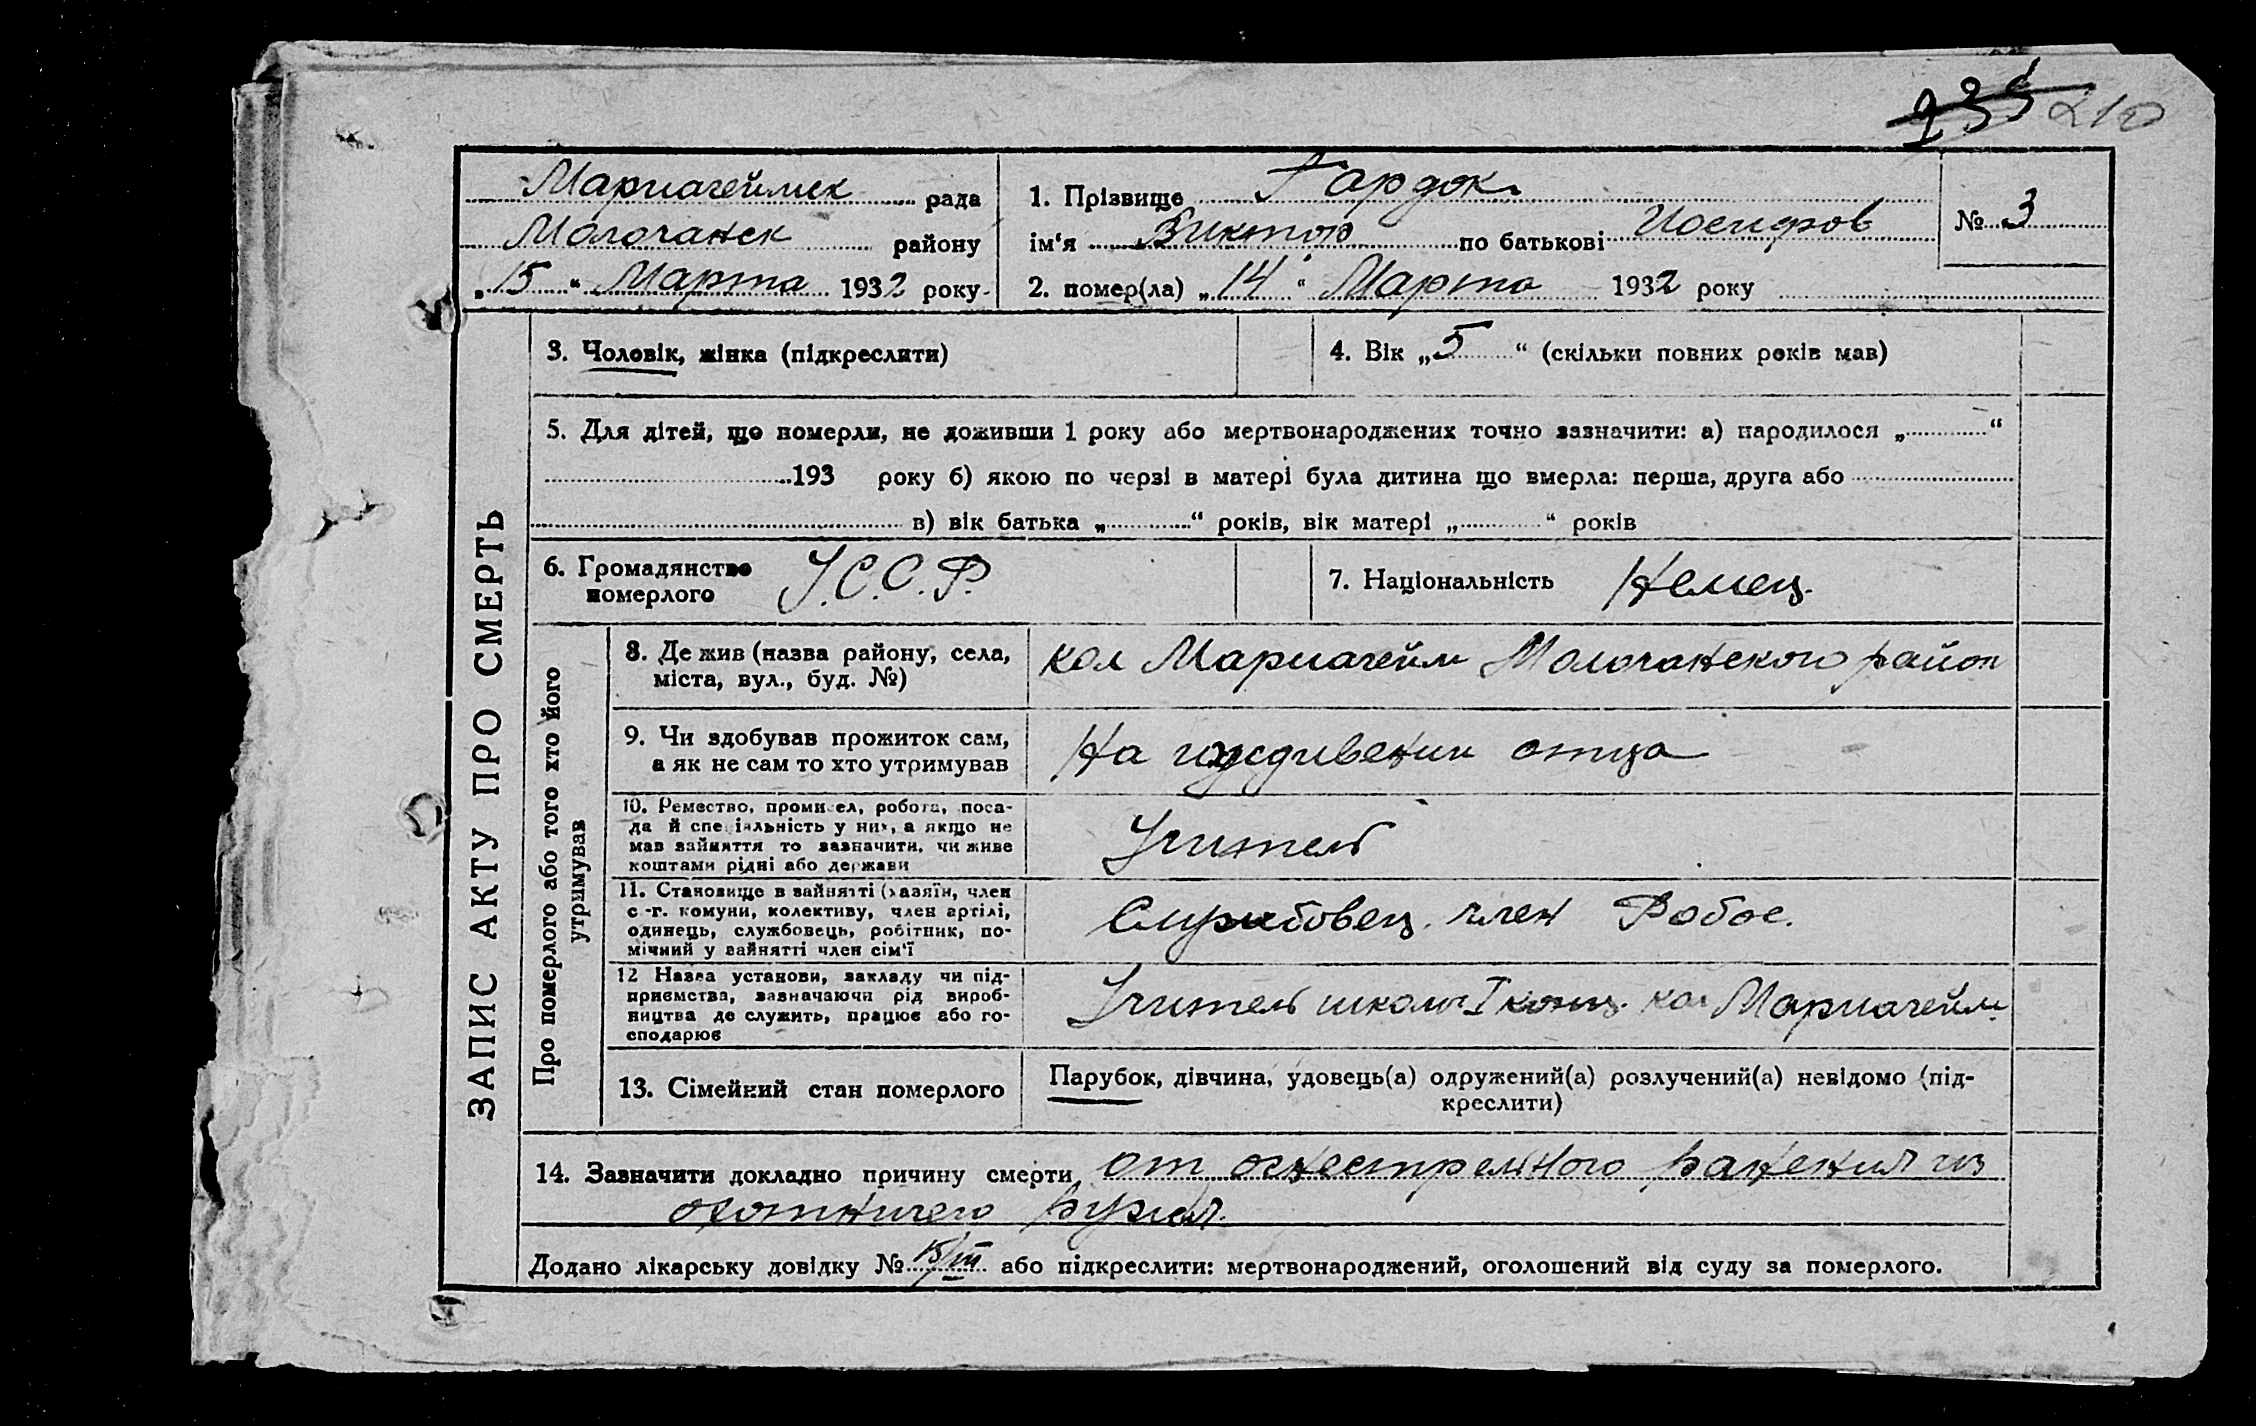 235 210
Мариагеймск рада
Молочанск району
„15“ Марта 1932 року
1. Прізвище Гардок
ім‘я Виктор по батькові Иосифов
2. помер(ла) „14“ Марта 1932 року
№ 3
ЗАПИС АКТУ ПРО СМЕРТЬ
3. Чоловік, жінка (підкреслити)
4. Вік „5“ (скільки повних років мав)
5. Для дітей, що померли, не доживши 1 року або мертвонароджених точно зазначити: а) народилося „ “
193 року б) якою по черзі в матері була дитина що вмерла: перша, друга або
в) вік батька „ “ років, вік матері „ “ років
6. Громадянство
померлого
У.С.С.Р.
7. Національність Немец.
Про померлого або того хто його
утримував
8. Де жив (назва району, села,
міста, вул., буд. №)
кол Мариагейм Молочанского район
9. Чи здобував прожиток сам,
а як не сам то хто утримував
На иждивении отца
10. Ремество, промисел, робота, поса-
да й спеціяльність у них, а якщо не
мав зайняття то зазначити, чи живе
коштами рідні або держави
Учитель
11. Становище в зайнятті (хазяїн, член
с.-г. комуни, колективу, член артілі,
одинець, службовець, робітник, по-
мічний у зайнятті член сім‘ї
Службовец. член Робос.
12 Назва установи, закладу чи під-
приємства, зазначаючи рід вироб-
ництва де служить, працює або го-
сподарює
Учитель школы I конц. кол Мариагейм
13. Сімейний стан померлого
Парубок, дівчина, удовець(а) одружений(а) розлучений(а) невідомо (під-
креслити)
14. Зазначити докладно причину смерти от огнестрельного ранения из
охотничего ружья.
Додано лікарську довідку № 15/III або підкреслити: мертвонароджений, оголошений від суду за померлого.